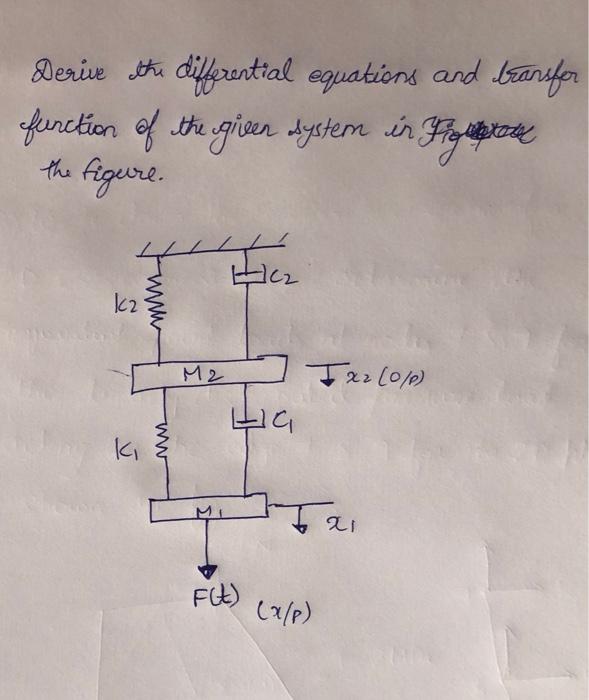 Derive the differential equations and transfer
function of the given system in
the figure.
K2
C2
M2
x2 (O/P)
K1
C1
M1
x1
F(t) (x/P)